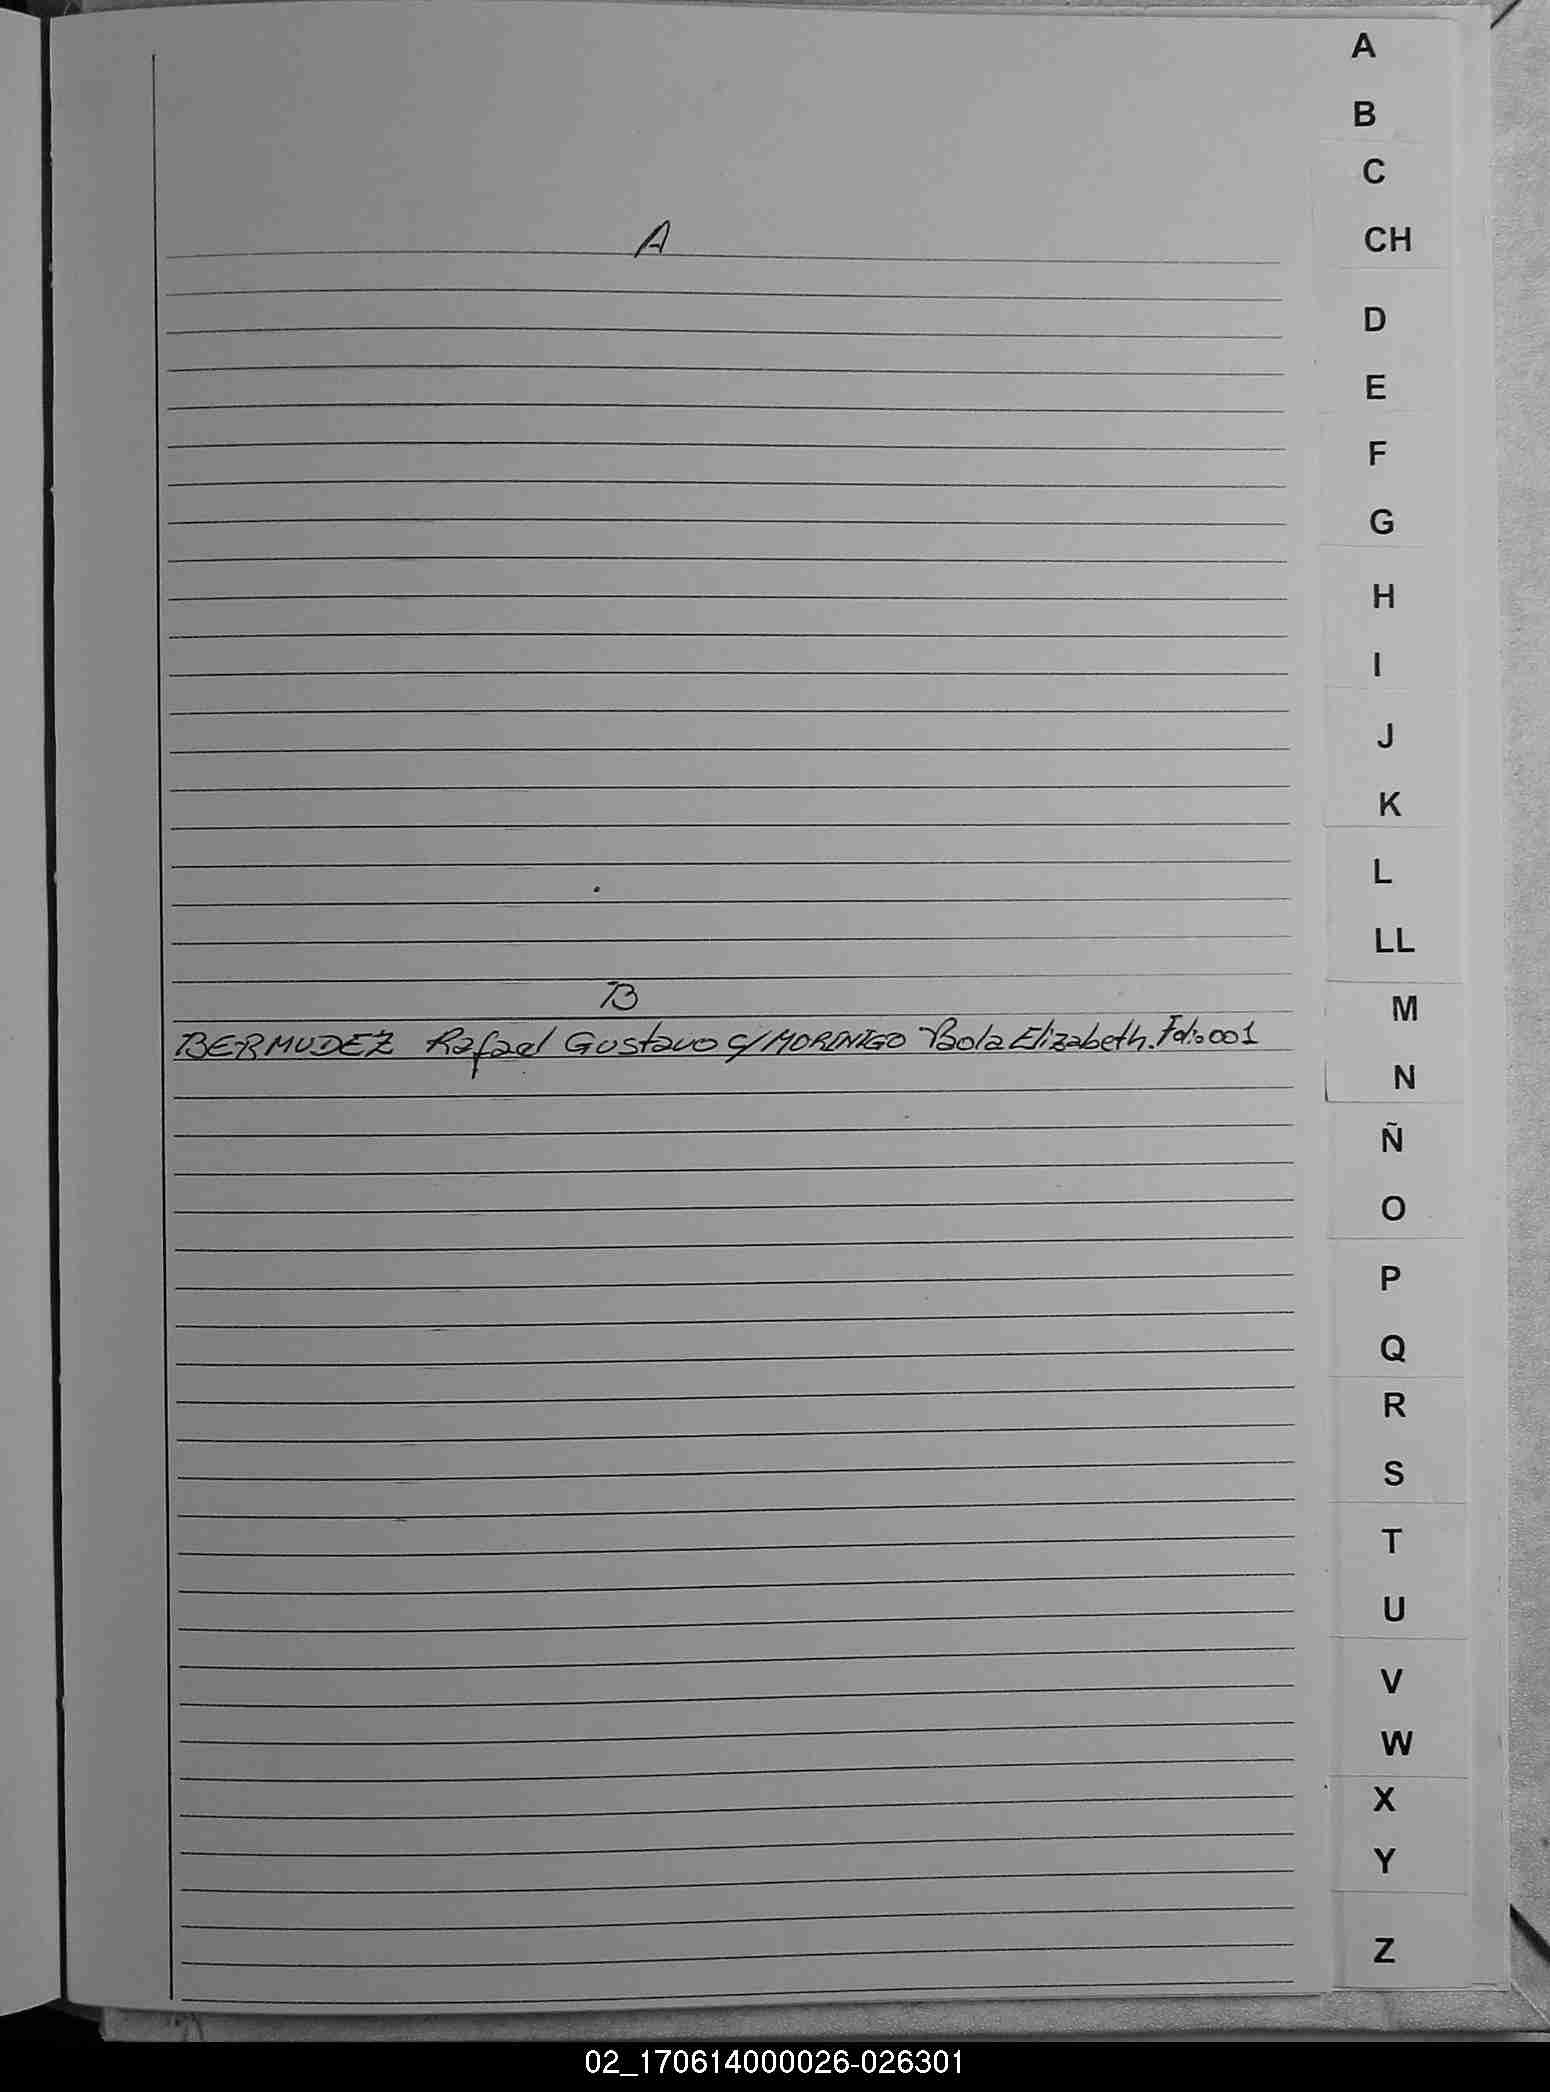 A
B
C
CH
D
E
F
G
H
I
J
K
L
LL
M
N
Ñ
O
P
Q
R
S
T
U
V
W
X
Y
Z
A
B
BERMUDEZ Rafael Gustavo c/MORINIGO Paola Elizabeth. Folio 001
02_170614000026-026301